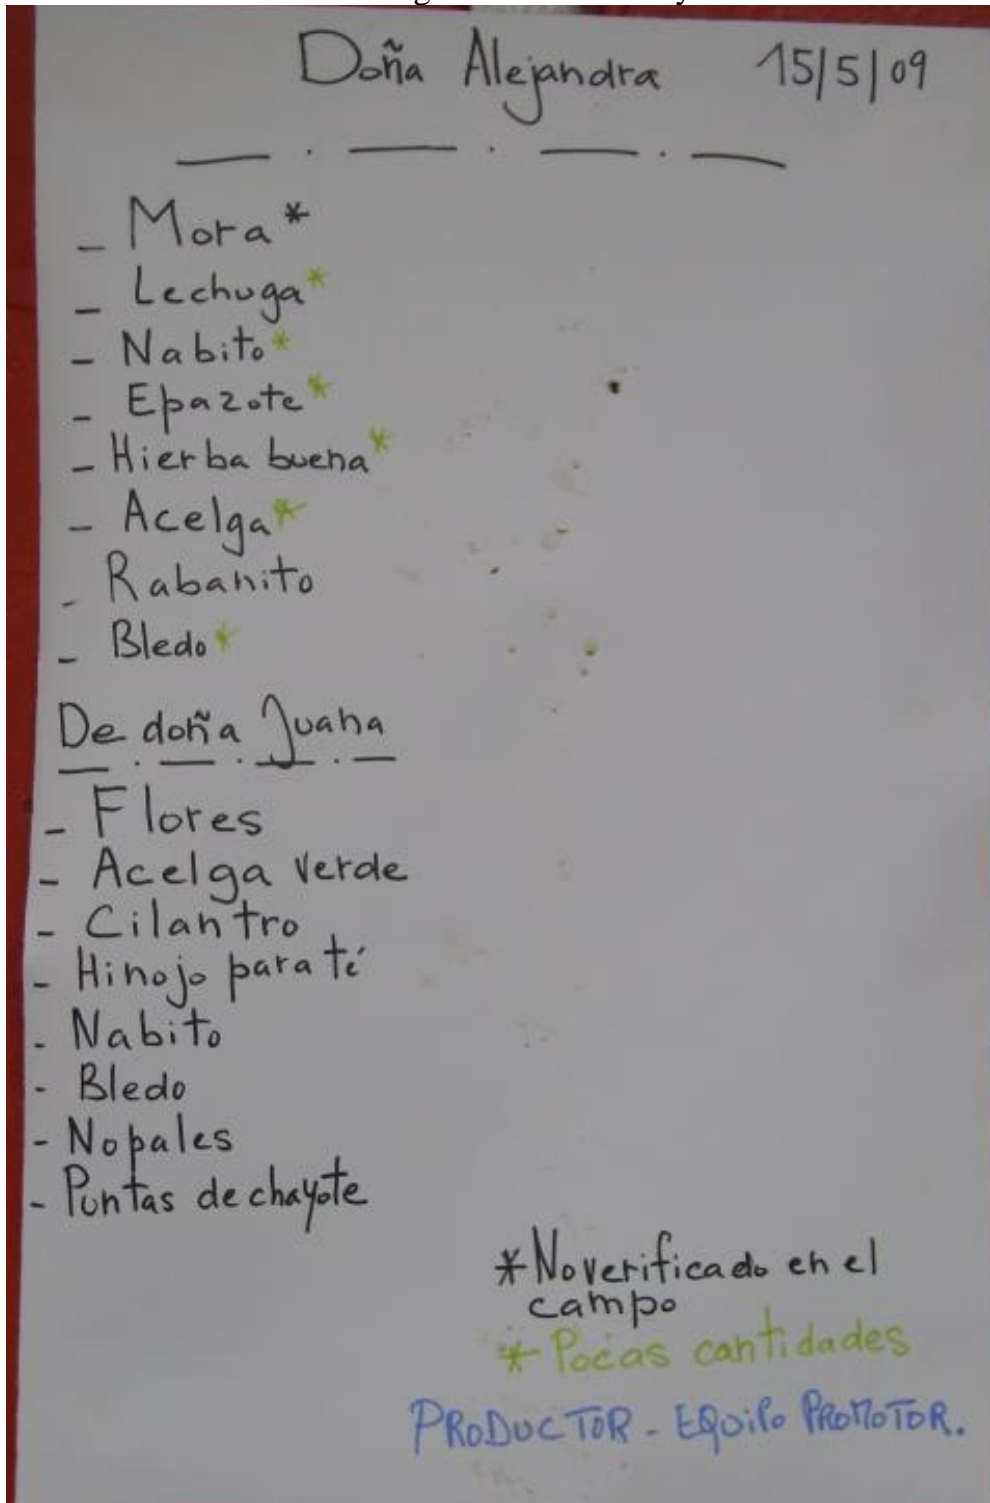 Doña Alejandra 15/5/09
- Mora*
- Lechuga*
- Nabito*
- Epazote*
- Hierba buena*
- Acelga*
- Rabanito
- Bledo*
De doña Juana
- Flores
- Acelga verde
- Cilantro
- Hinojo para té
- Nabito
- Bledo
- Nopales
- Puntas de chayote
* No verificado en el
campo
* Pocas cantidades
PRODUCTOR - EQUIPO PROMOTOR.